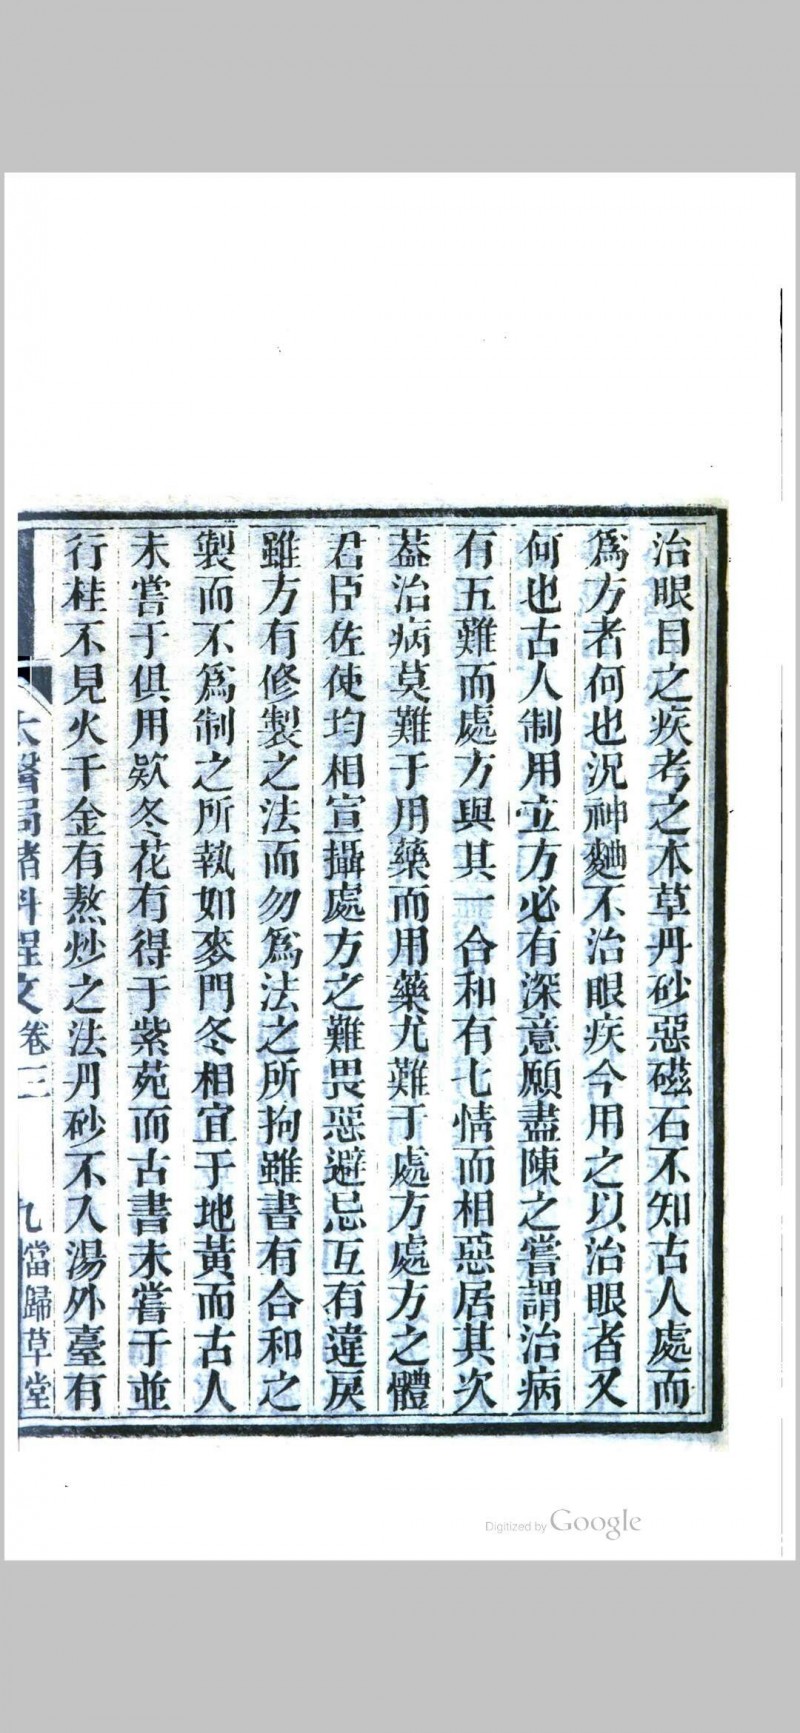 治眼目之疾考之本草丹砂惡磁石不知古人處而
爲方者何也況神麯不治眼疾今用之以治眼者又
何也古人制用立方必有深意願盡陳之嘗謂治病
有五難而處方與其一合和有七情而相惡居其次
葢治病莫難于用藥而用藥尤難于處方處方之體
君臣佐使均相宣攝處方之難畏惡避忌互有違戾
雖方有修製之法而勿爲法之所拘雖書有合和之
製而不爲制之所執如麥門冬相宜于地黃而古人
未嘗于俱用欵冬花有得于紫苑而古書未嘗于並
行桂不見火千金有熬炒之法丹砂不入湯外臺有
太醫局諸科程文卷三 九當歸草堂
Digitized by Google